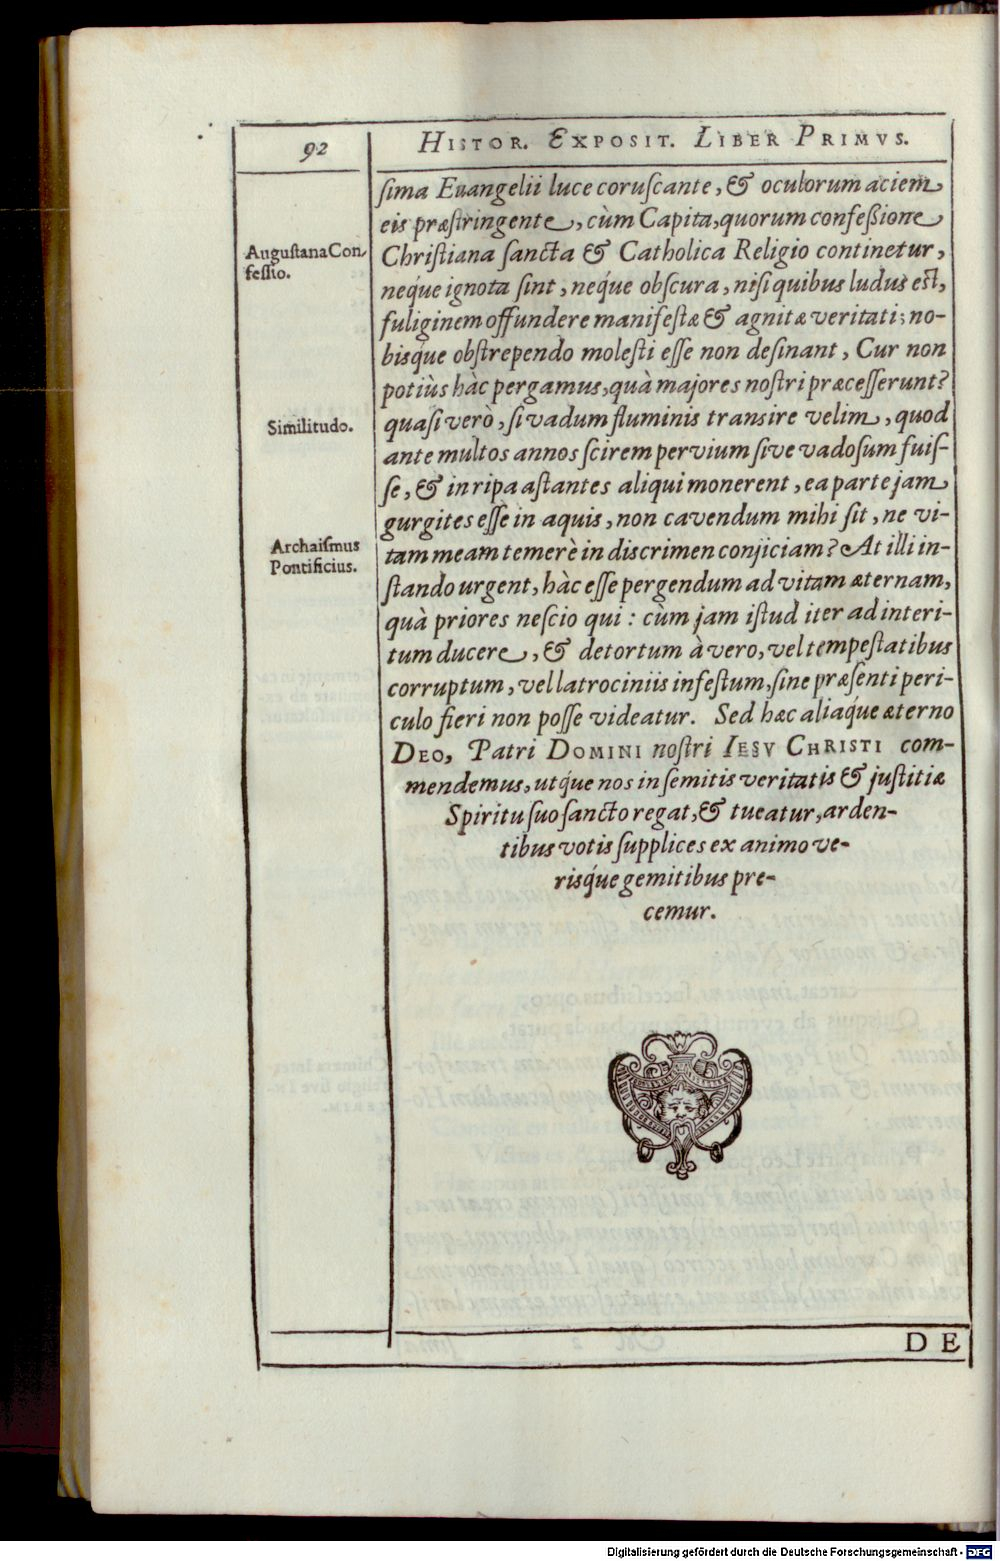 92
HISTOR. EXPOSIT. LIBER PRIMVS.
ſima Euangelii luce coruſcante, & oculorum aciem
eis præſtringente, cùm Capita, quorum confeßione
Augustana Con
feſſio.
Chriſtiana ſancta & Catholica Religio continetur,
neque ignota ſint, neque obſcura, niſi quibus ludus eſt,
fuliginem offundere manifeſtæ & agnitæ veritati; no-
bisque obſtrependo moleſti eſſe non deſinant, Cur non
potiùs hàc pergamus, quà majores noſtri præceſſerunt?
Similitudo.
quaſi verò, ſi vadum fluminis tranſire velim, quod
ante multos annos ſcirem pervium ſive vadoſum fuiſ-
ſe, & in ripa aſtantes aliqui monerent, ea parte jam
gurgites eſſe in aquis, non cavendum mihi ſit, ne vi-
Archaiſmus
Pontificius.
tam meam temerè in discrimen conjiciam? At illi in-
ſtando urgent, hàc eſſe pergendum ad vitam æternam,
quà priores neſcio qui: cùm jam iſtud iter ad interi-
tum ducere, & detortum à vero, vel tempeſtatibus
corruptum, vel latrociniis infeſtum, ſine præſenti peri-
culo fieri non poſſe videatur. Sed hæc aliaque æterno
DEO, Patri DOMINI noſtri IESV CHRISTI com-
mendemus, utque nos in ſemitis veritatis & juſtitiæ
Spiritu ſuo ſancto regat, & tueatur, arden-
tibus votis ſupplices ex animo ve-
risque gemitibus pre-
cemur.
DE
Digitalisierung gefördert durch die Deutsche Forschungsgemeinschaft - DFG